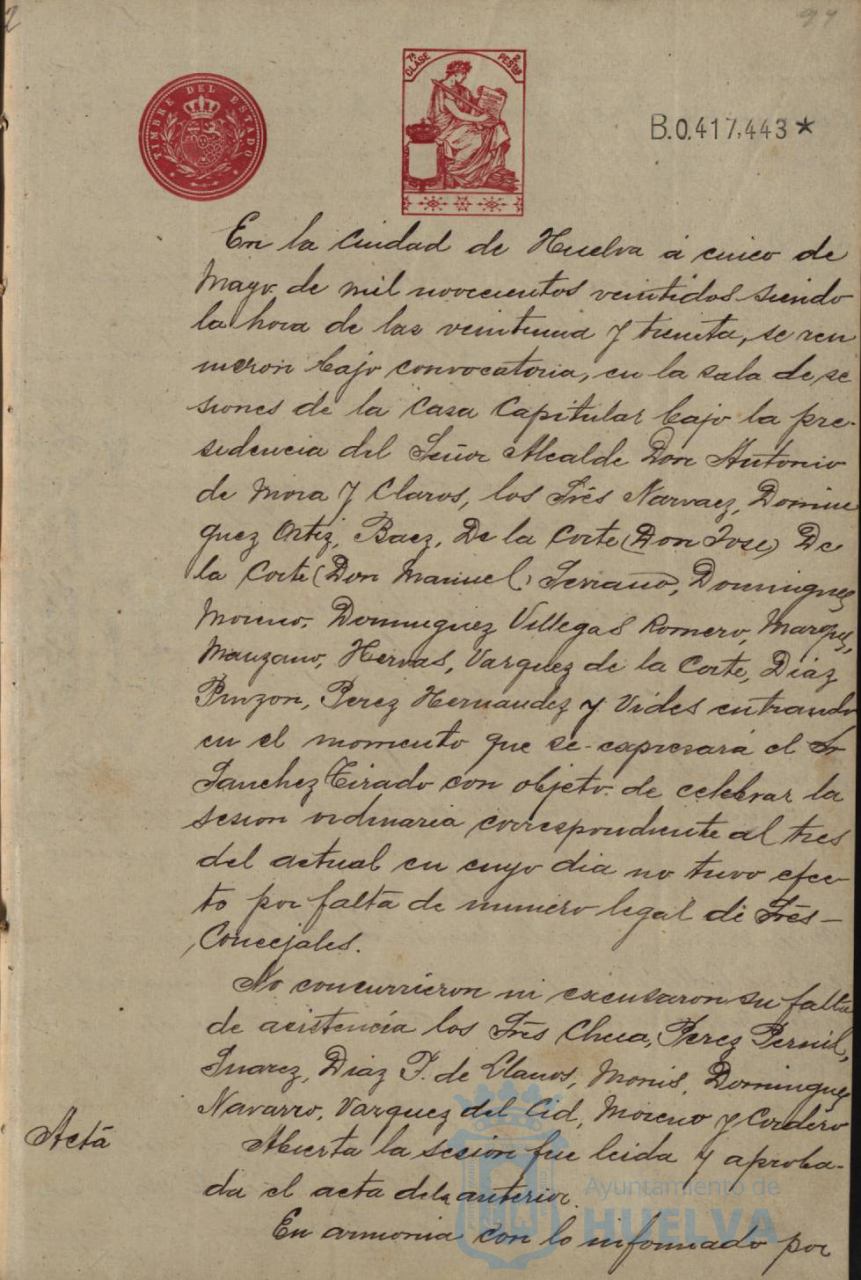 2
97
TIMBRE DEL ESTADO
7ª CLASE
2 PESTAS
B.0.417,443*
En la Ciudad de Huelva á cinco de
Mayo de mil novecientos veintidos siendo
la hora de las veintiuna y treinta, se reu
nieron bajo convocatoria, en la sala de se
siones de la Casa Capitular bajo la pre-
sidencia del Señor Alcalde Don Antonio
de Mora y Claros, los Srēs Narvaez, Domin
guez Ortiz, Baez, De la Corte (Don Jose) De
la Corte (Don Manuel) Serrano, Dominguez
Moreno, Dominguez Villegas Romero, Marquez,
Manzano, Hervas, Vazquez de la Corte, Diaz
Pinzon, Perez Hernandez y Vides entrando
en el momento que se expresará el Sr
Sanchez Tirado con objeto de celebrar la
sesion ordinaria correspondiente al tres
del actual en cuyo dia no tuvo efec-
to por falta de numero legal de Srēs-
Concejales.
No concurrieron ni excusaron su falta
de asistencia los Srēs Checa, Perez Pernil,
Suarez, Diaz F. de Llanos, Monis, Dominguez
Navarro, Vazquez del Cid, Moreno y Cordero
Acta
Abierta la sesion fue leida y aproba-
da el acta de la anterior.
En armonia con lo informado por
Ayuntamiento de
HUELVA